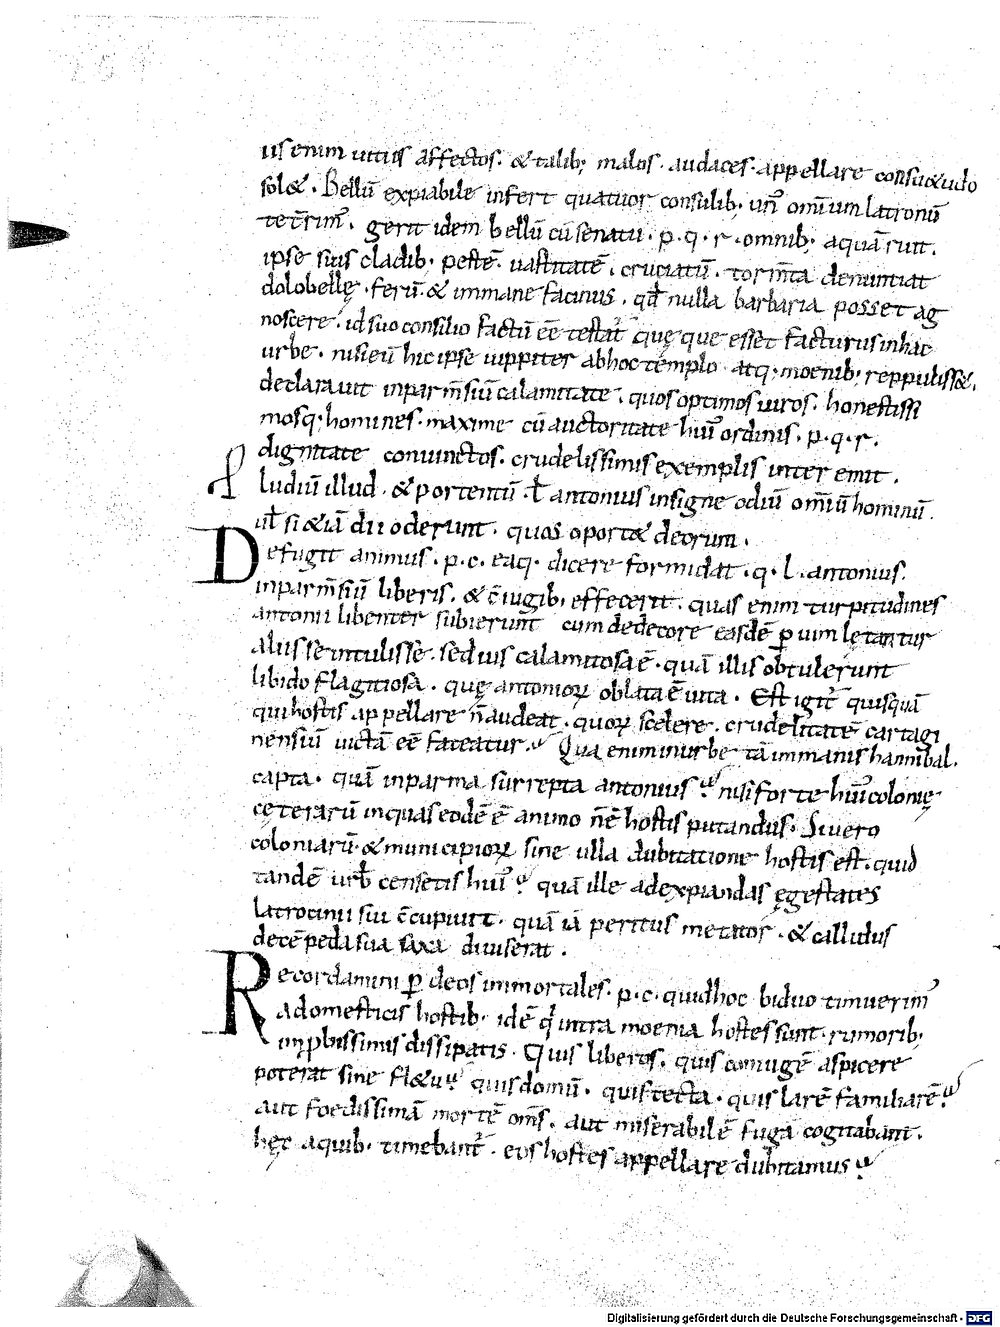 us enim uitiis affectos. & talib; malos. audaces. appellare consu&udo
sol&. Bellũ expiabile infert quatuor consulib; un᷒ omiũum latronũ
tet̄rim᷒. gerit idem bellũ cũ senatu. p. q. r. omnib; aquã ruit.
ipse suis cladib; pestẽ. uastitatẽ. cruciatũ. tormta denuntiat
dolobellę. ferũ. & immane facinus. qđ nulla barbaria posset ag
noscere. id suo consilio factũ eẽ testat᷒ quę que esset facturus in hac
urbe. nisi eũ hic ipse iuppiter ab hoc templo atq; moenib; reppuliss&.
declarauit in parm̄siũ calamitate. quos optimos uiros. honestissi
mosq; homines. maxime cũ auctoritate hui᷒ ordinis. p. q. r.
dignitate coniunctos. crudelissimis exemplis inter emit.
ludiũ illud. & portentũ. ł antonius insigne odiũ omiũ hominũ.
uł si &iã dii oderunt. quos oport& deorum.
Defugit animus. p. c. eaq. dicere formidat. q. l. antonius.
in parm̄siũ liberis. & c̄iugib; effecerit. quas enim turpitudines
antonii libenter subierunt cum dedecore easdẽ p̱ uim lętantur
aliis se intulisse. sed uis calamitosa ẽ. quã illis obtulerunt
libido flagitiosa. quę antonioꝝ oblata ẽ uita. Est igit᷒ quisquã
qui hostis appellare n̄ audeat. quoꝝ scelere. crudelitatẽ cartagi
nensiũ uictã eẽ fateatur. Qua enim in urbe tã immanis hannibal.
capta. quã in parma surrepta antonius nisi forte hui᷒ colonię
cęterarũ in quas eodẽ ẽ animo n̄ ẽ hostis putandus. Si uero
coloniarũ & municipioꝝ sine ulla dubitatione hostis est. quid
tandẽ urb̄ censetis hui᷒ quã ille ad expiandas ęgestates
latrocinii sui c̄cupiuit. quã iã peritus metator. & callidus
decẽpeda sua saxa diuiserat.
Recordamini p̱ deos immortales. p. c. quid hoc biduo timuerim᷒
a domesticis hostib; idẽ qͥ intra moenia hostes sunt. rumorib;
improbissimis dissipatis. Quis liberos. quis coniugẽ aspicere
poterat sine fl&u quis domũ. quis tecta. quis larẽ familiarẽ
aut foedissimã mortẽ om̄s. aut miserabilẽ fugã cogitabant.
hęc a quib; timebant᷒. eos hostes appellare dubitamus
Digitalisierung gefördert durch die Deutsche Forschungsgemeinschaft - DFG